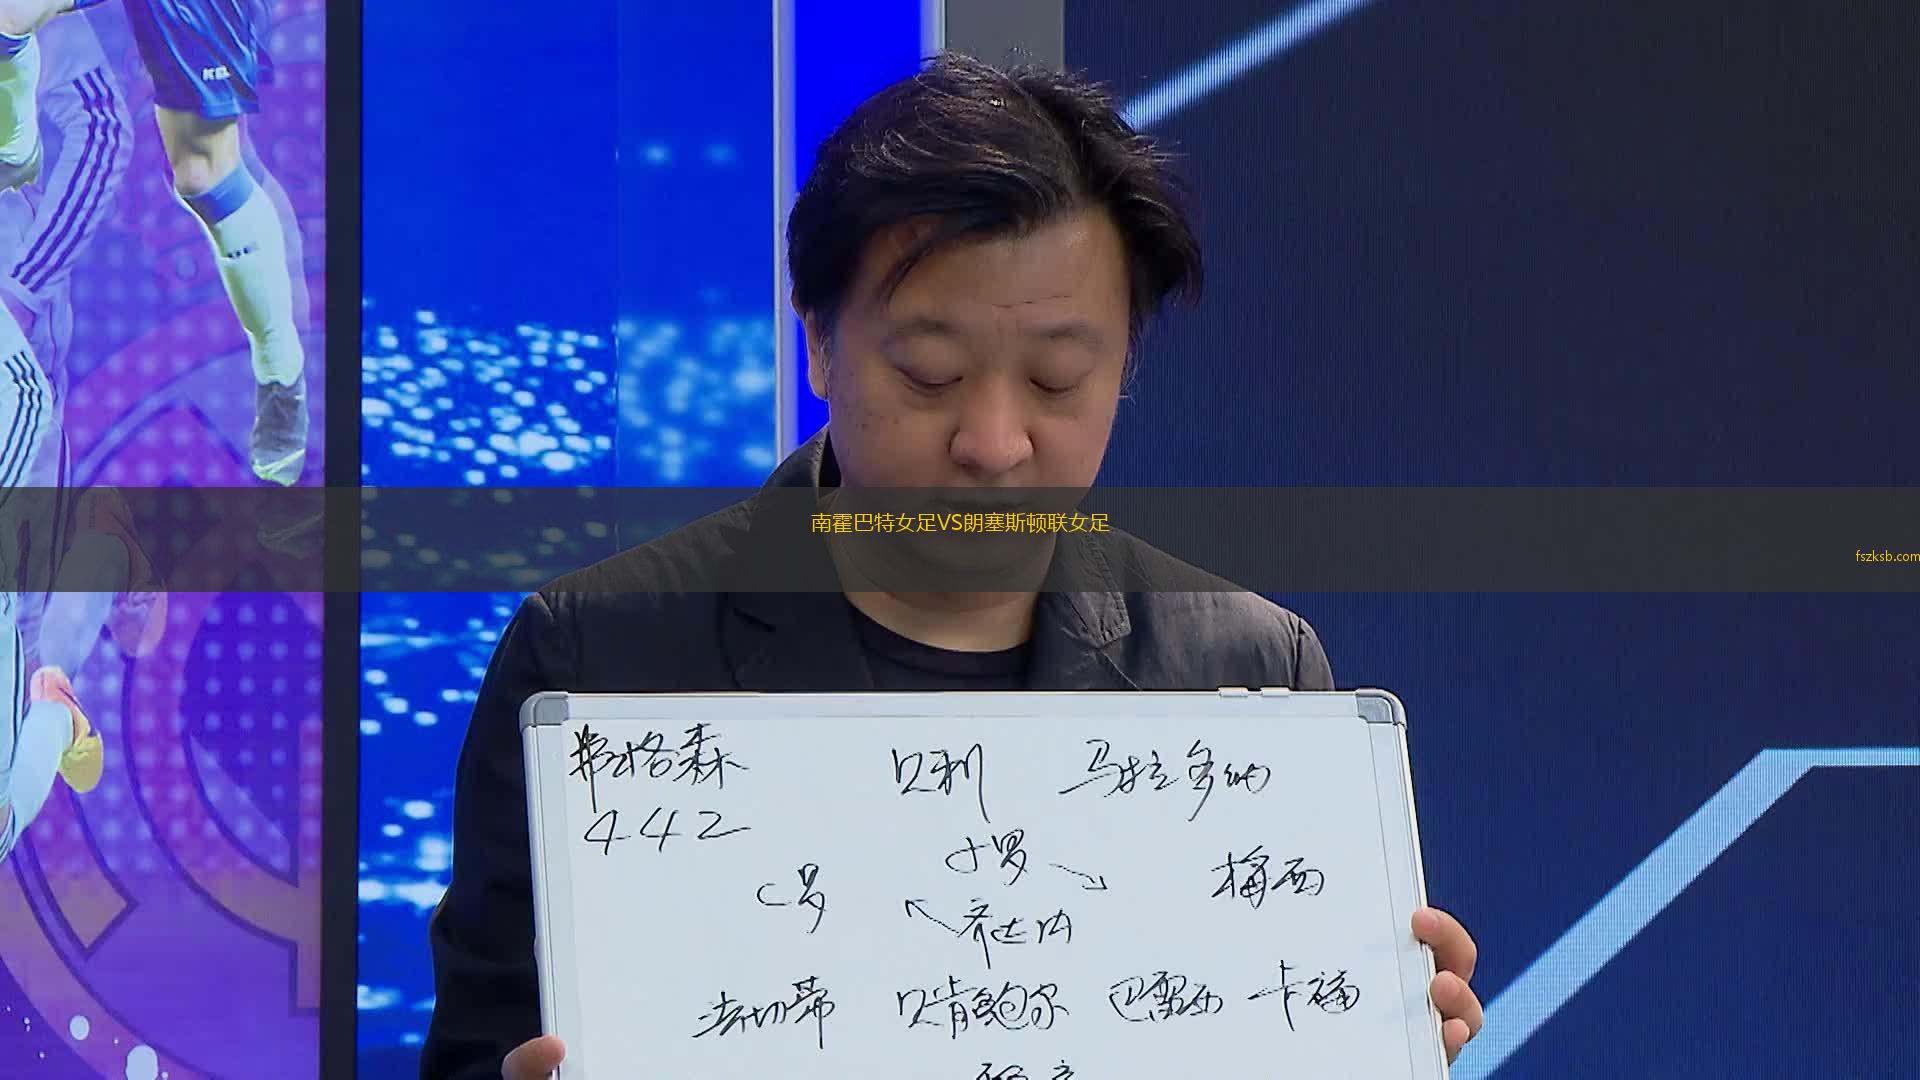 KEL
南霍巴特女足VS朗塞斯顿联女足
fszksb.com
弗格森 贝利 马拉多纳
442
小罗
C罗 梅西
齐达内
法切蒂 贝肯鲍尔 巴雷西 卡福